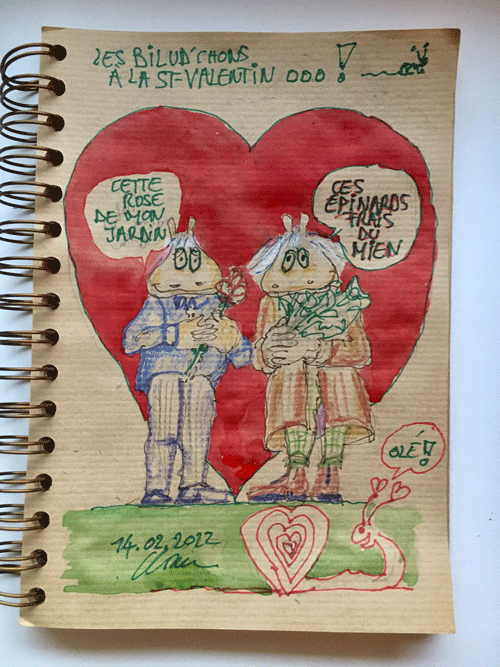 LES BILUD'CHONS
À LA ST-VALENTIN ooo !
CETTE
ROSE
DE MON
JARDIN
CES
ÉPINARDS
FRAIS
DU
MIEN
OLÉ !
14.02.2022